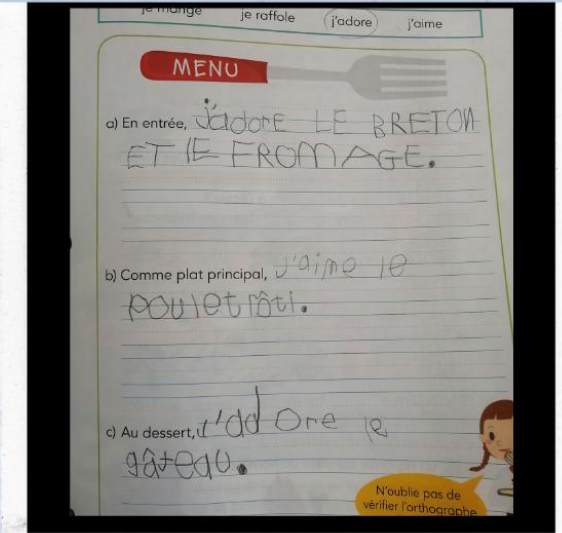 je mange je raffole j'adore j'aime
MENU
a) En entrée, j'adore LE BRETON
ET lE FROMAGE.
b) Comme plat principal, j'aime le
poulet rôti.
c) Au dessert, j'adore le
gâteau.
N'oublie pas de
vérifier l'orthographe